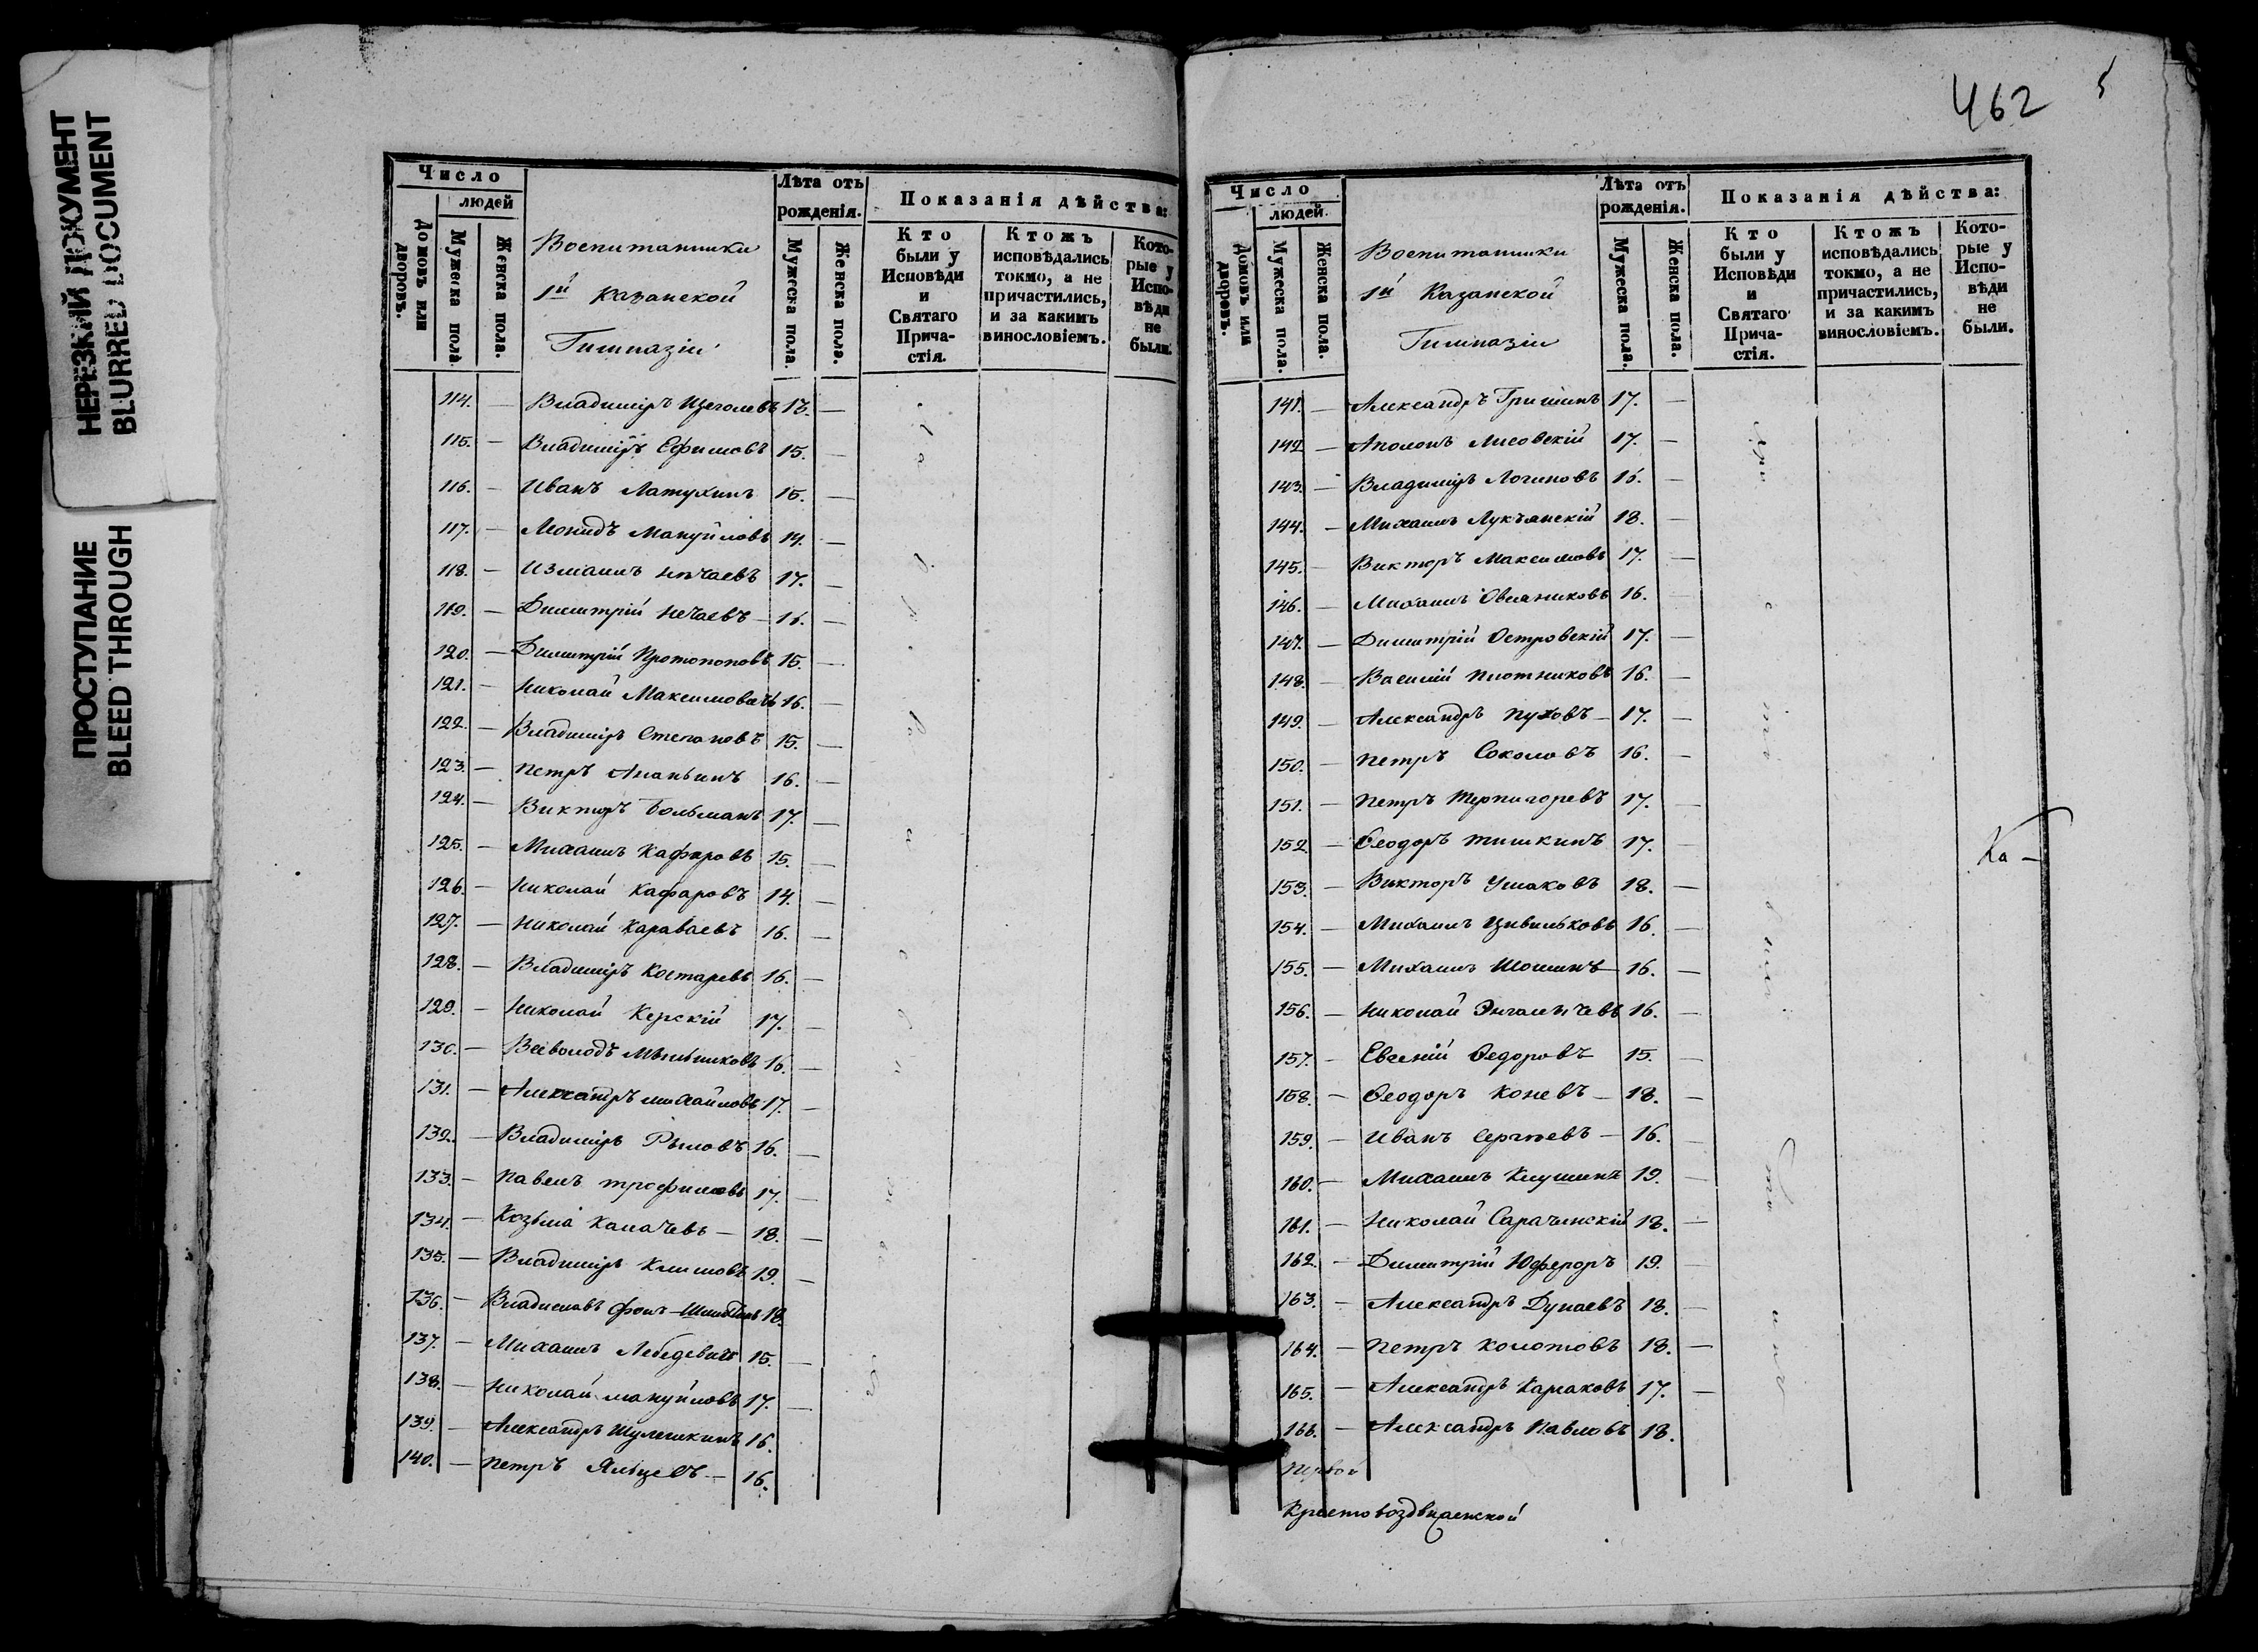 НЕРЕЗКИЙ ДОКУМЕНТ
BLURRED DOCUMENT
ПРОСТУПАНИЕ
BLEED THROUGH
Число
людей
Домовъ или дворовъ.
Мужеска пола
Женска пола.
Воспитанники
1й Казанской
Гимназіи
Лѣта отъ рожденія.
Мужеска пола.
Женска пола.
Показанія дѣйства:
Кто были у Исповѣди и Святаго Прича-стія.
Ктожъ исповѣдались токмо, а не причастились, и за какимъ винословіемъ.
Кото-рые у Испо-вѣди не были.
114. — Владиміръ Щеголевъ —
115. — Владиміръ Ефимовъ 15. —
116. — Иванъ Латухинъ 15. —
117. — Леонидъ Мануйловъ 14. —
118. — Измаилъ Нечаевъ 17. —
119. — Димитрій Нечаевъ — 16. —
120. — Димитрій Протопоповъ 15. —
121. — Николай Максимовичъ 16. —
122. — Владиміръ Степановъ 15. —
123. — Петръ Ананьинъ 16. —
124. — Викторъ Больманъ 17. —
125. — Михаилъ Кафаровъ 15. —
126. — Николай Кафаровъ 14. —
127. — Николай Караваевъ 16. —
128. — Владиміръ Костаревъ 16. —
129. — Николай Керскій 17. —
130. — Всеволодъ Мельниковъ 16. —
131. — Александръ Михайловъ 17. —
132. — Владиміръ Рыловъ 16. —
133. — Павелъ Трофимовъ 17. —
134. — Козьма Калачевъ — 18. —
135. — Владиміръ Климовъ 19. —
136. — Владиславъ фонъ- 18.
137. — Михаилъ Лебедевъ 15. —
138. — Николай Мануйловъ 17. —
139. — Александръ 16.
140. — Петръ Яльцевъ — 16.
462
Число
людей.
Домовъ или дворовъ.
Мужеска пола.
Женска пола.
Воспитанники
1й Казанской
Гимназіи
Лѣта отъ рожденія.
Мужеска пола.
Женска пола.
Показанія дѣйства:
Кто были у Исповѣди и Святаго Прича-стія.
Ктожъ исповѣдались токмо, а не причастились, и за какимъ винословіемъ.
Кото-рые у Испо-вѣди не были.
141. — Александръ Гришинъ 17. —
142 — Аполонъ Лисовскій 17. —
143. — Владиміръ Логиновъ 15. —
144. — Михаилъ Лукъянскій 18. —
145. — Викторъ Максимовъ 17. —
146. — Михаилъ Овсяниковъ 16. —
147. — Димитрій Островскій 17. —
148. — Василій Плотниковъ 16. —
149. — Александръ Пуховъ — 17. —
150. — Петръ Соколовъ 16. —
151. — Петръ Терпигоревъ 17. —
152. — Ѳеодоръ Тишкинъ 17. —
153. — Викторъ Ушаковъ 18. —
154. — Михаилъ Цивильковъ 16. —
155. — Михаилъ Шошинъ — 16. —
156. — Николай Энгалычевъ 16. —
157. — Евгеній Ѳедоровъ 15. —
158. — Ѳеодоръ Коневъ — 18. —
159. — Иванъ Сергѣевъ — 16. —
160. — Михаилъ Клушинъ 19. —
161. — Николай Сарачинскій 18. —
162. — Димитрій Юфероръ 19. —
163. — Александръ Дунаевъ 18. —
164. — Петръ Колотовъ 18. —
165. — Александръ Кармаковъ 17. —
166. — Александръ Павловъ 18.
Первой
Крестовоздвиженской
Ка —